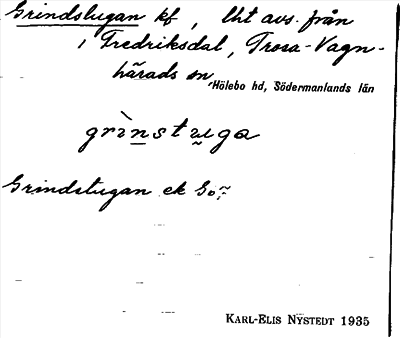 Grindstugan kf, lht avs. från
i Fredriksdal, Trosa-Vagn-
härads sn, Hölebo hd, Södermanlands län
grìnstuga
Grindstugan ek Go
KARL-ELIS NYSTEDT 1935